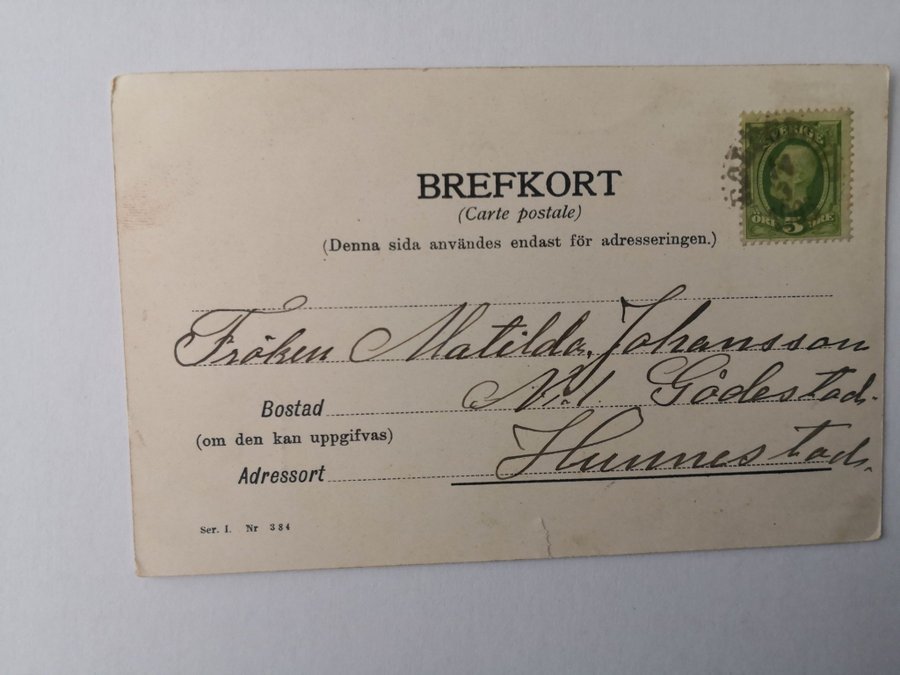 BREFKORT
(Carte postale)
(Denna sida användes endast för adresseringen.)
SVERIGE
ÖRE 5 ÖRE
Fröken Matilda Johansson
N:1 Gödestad.
Bostad
(om den kan uppgifvas)
Hunnestad.
Adressort
Ser. I. Nr 384